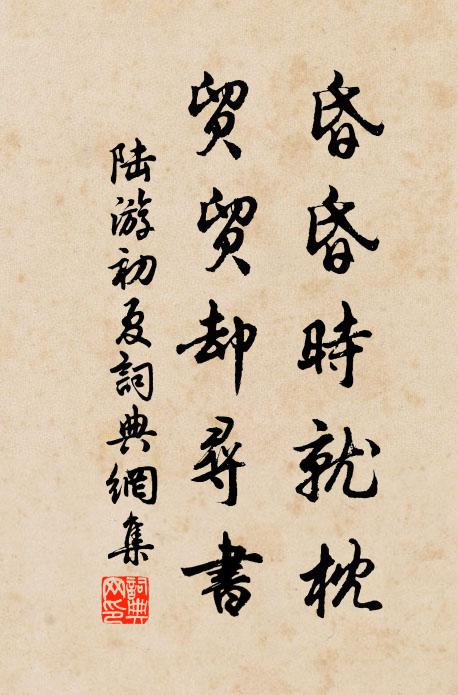 昏昏時就枕
貿貿却尋書
陸游初夏詞典網集
詞典網印